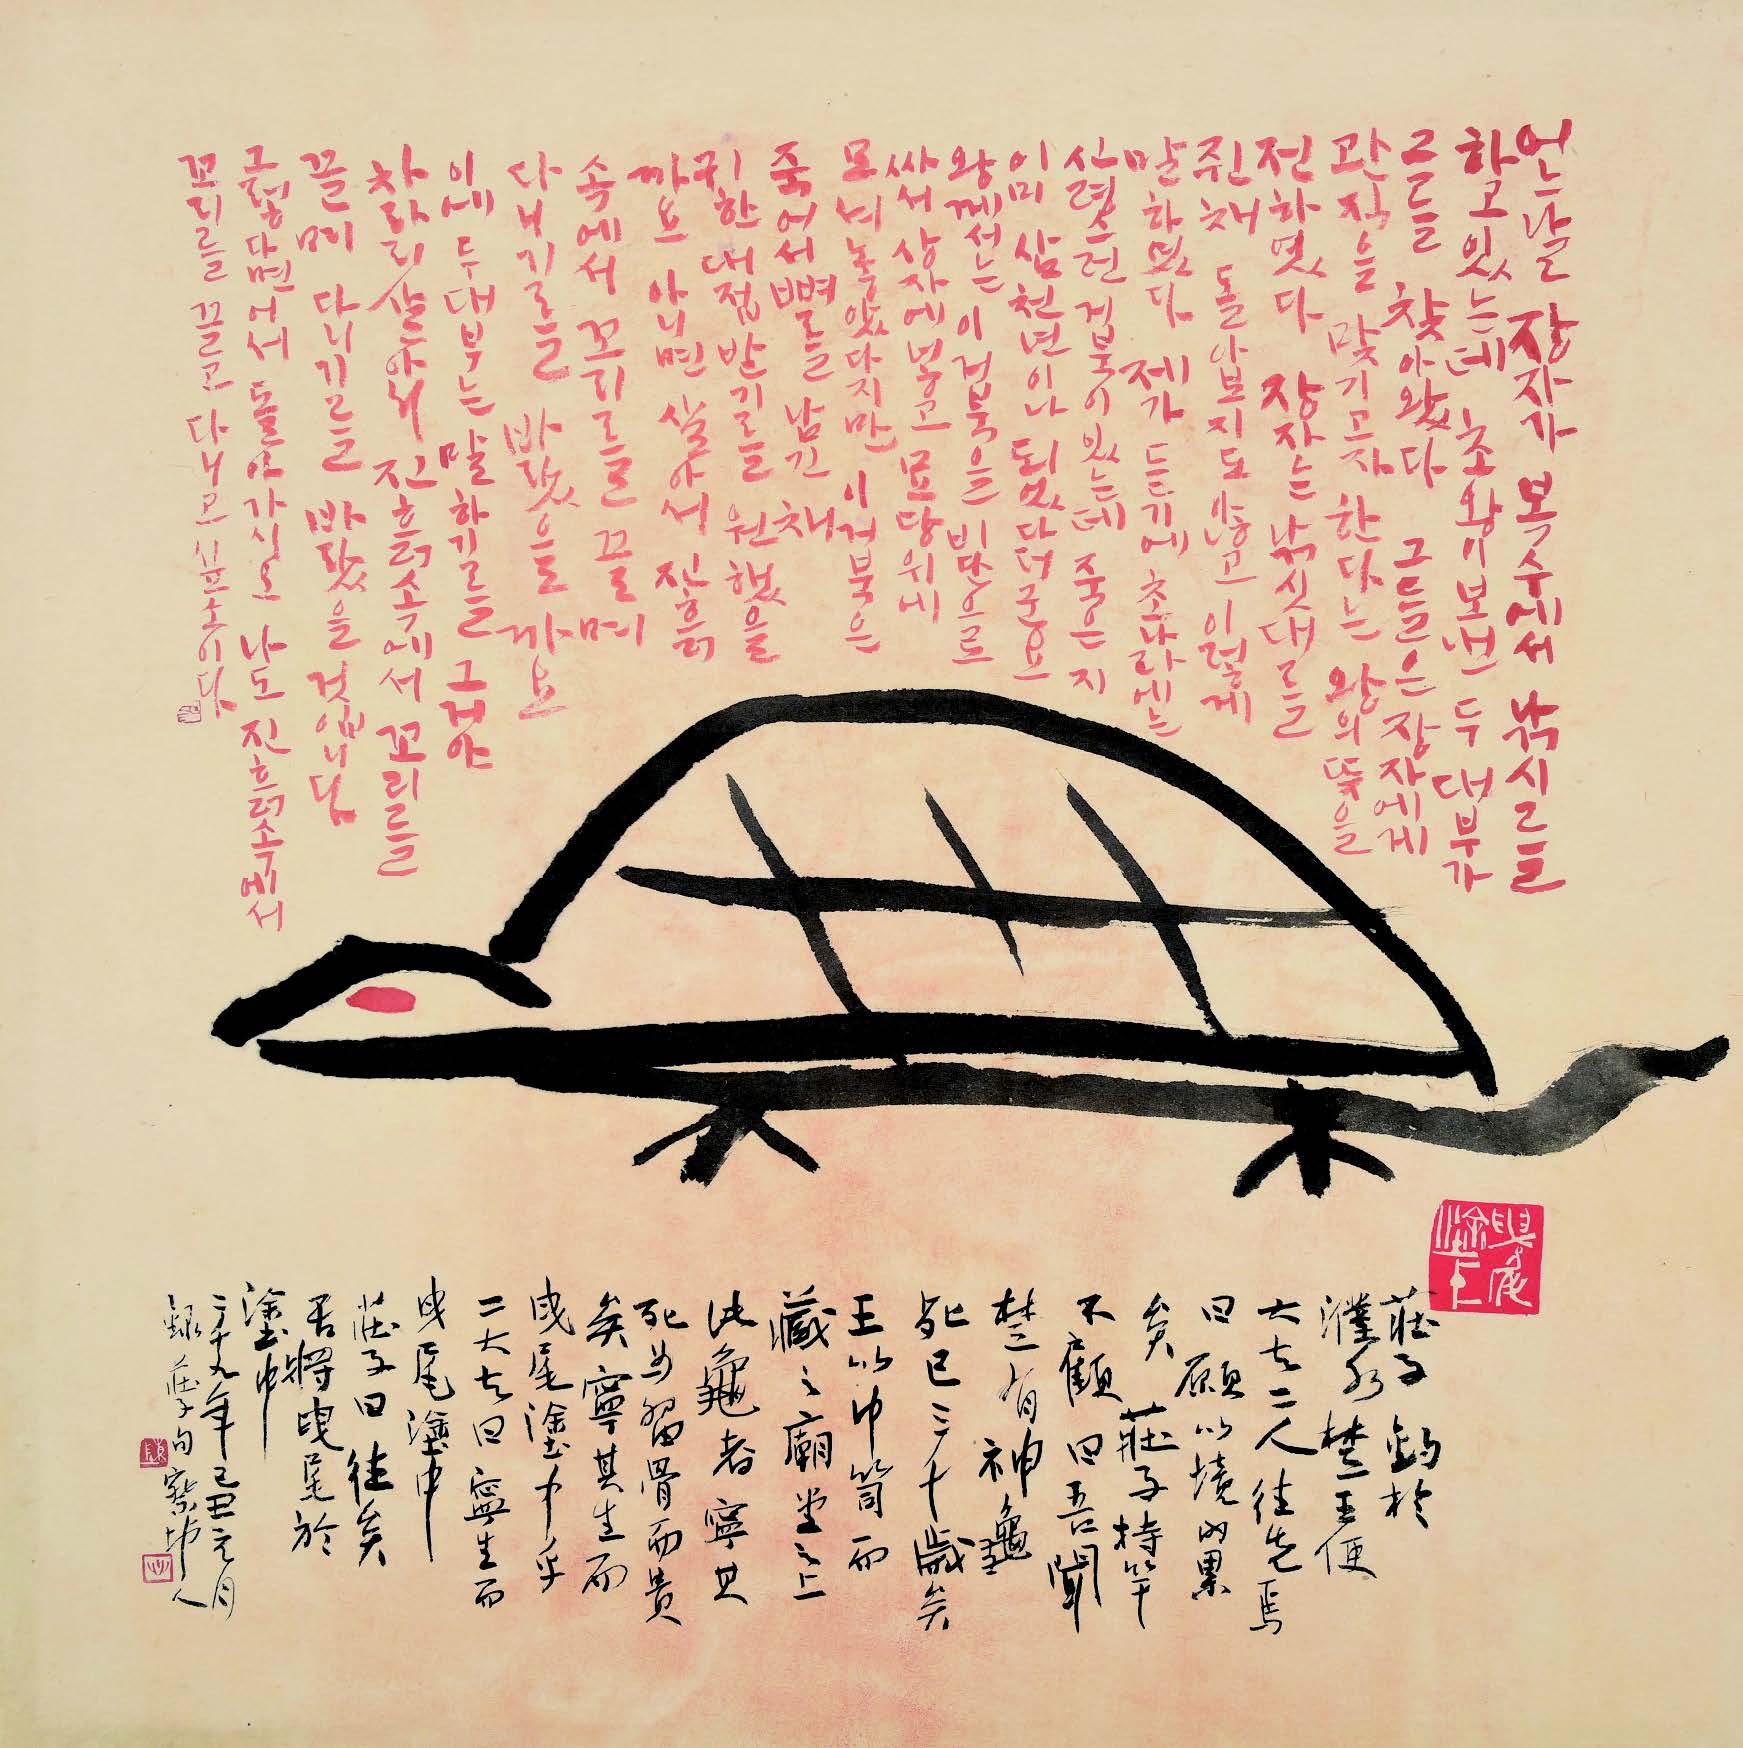 어느날 장자가 복수에서 낚시를
하고 있는데 초왕이 보낸 두 대부가
그를 찾아왔다 그들은 장자에게
관직을 맞기고자 한다는 왕의 뜻을
전하였다 장자는 낚싯대를
쥔채 돌아보지도 않고 이렇게
말하였다 제가 듣기에 초나라에는
신령스런 거북이 있는데 죽은지
이미 삼천년이나 되었다더군요
왕께선는 이 거북을 비단으로
싸서 상자에 넣고 묘당위에
모셔놓았다지만 이 거북은
죽어서 뼈를 남긴 채
귀한 대접받기를 원했을
까요 아니면 살아서 진흙
속에서 꼬리를 끌며
다니기를 바랐을까요
이에 두 대부는 말하기를 그거야
차라리 살아서 진흙속에서 꼬리를
끌며 다니기를 바랐을 것입니다
그렇다면 어서 돌아가시오 나도 진흙속에서
꼬리를 끌고 다니고 싶소이다
曳尾
塗中
莊子釣於
濮水楚王使
大夫二人往先焉
曰願以境內累
矣莊子持竿
不顧曰吾聞
楚有神龜
死已三千歲矣
王以巾笥而
藏之廟堂之上
此龜者寧其
死爲留骨而貴
矣寧其生而
曳尾塗中乎
二大夫曰寧生而
曳尾塗中
莊子曰往矣
吾將曳尾於
塗中
二千九年己丑元月
錄莊子句